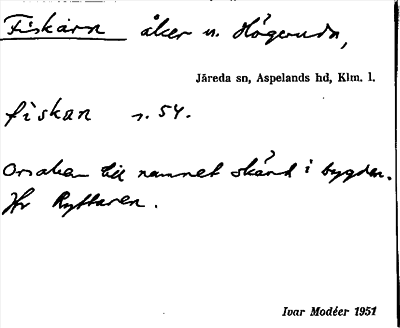 Fiskårn åker u. Högeruda,
Järeda sn, Aspelands hd, Klm. l.
fiskan s. 54.
Orsaken till namnet okänd i bygden.
Hv Ryttaren.
Ivar Modéer 1951